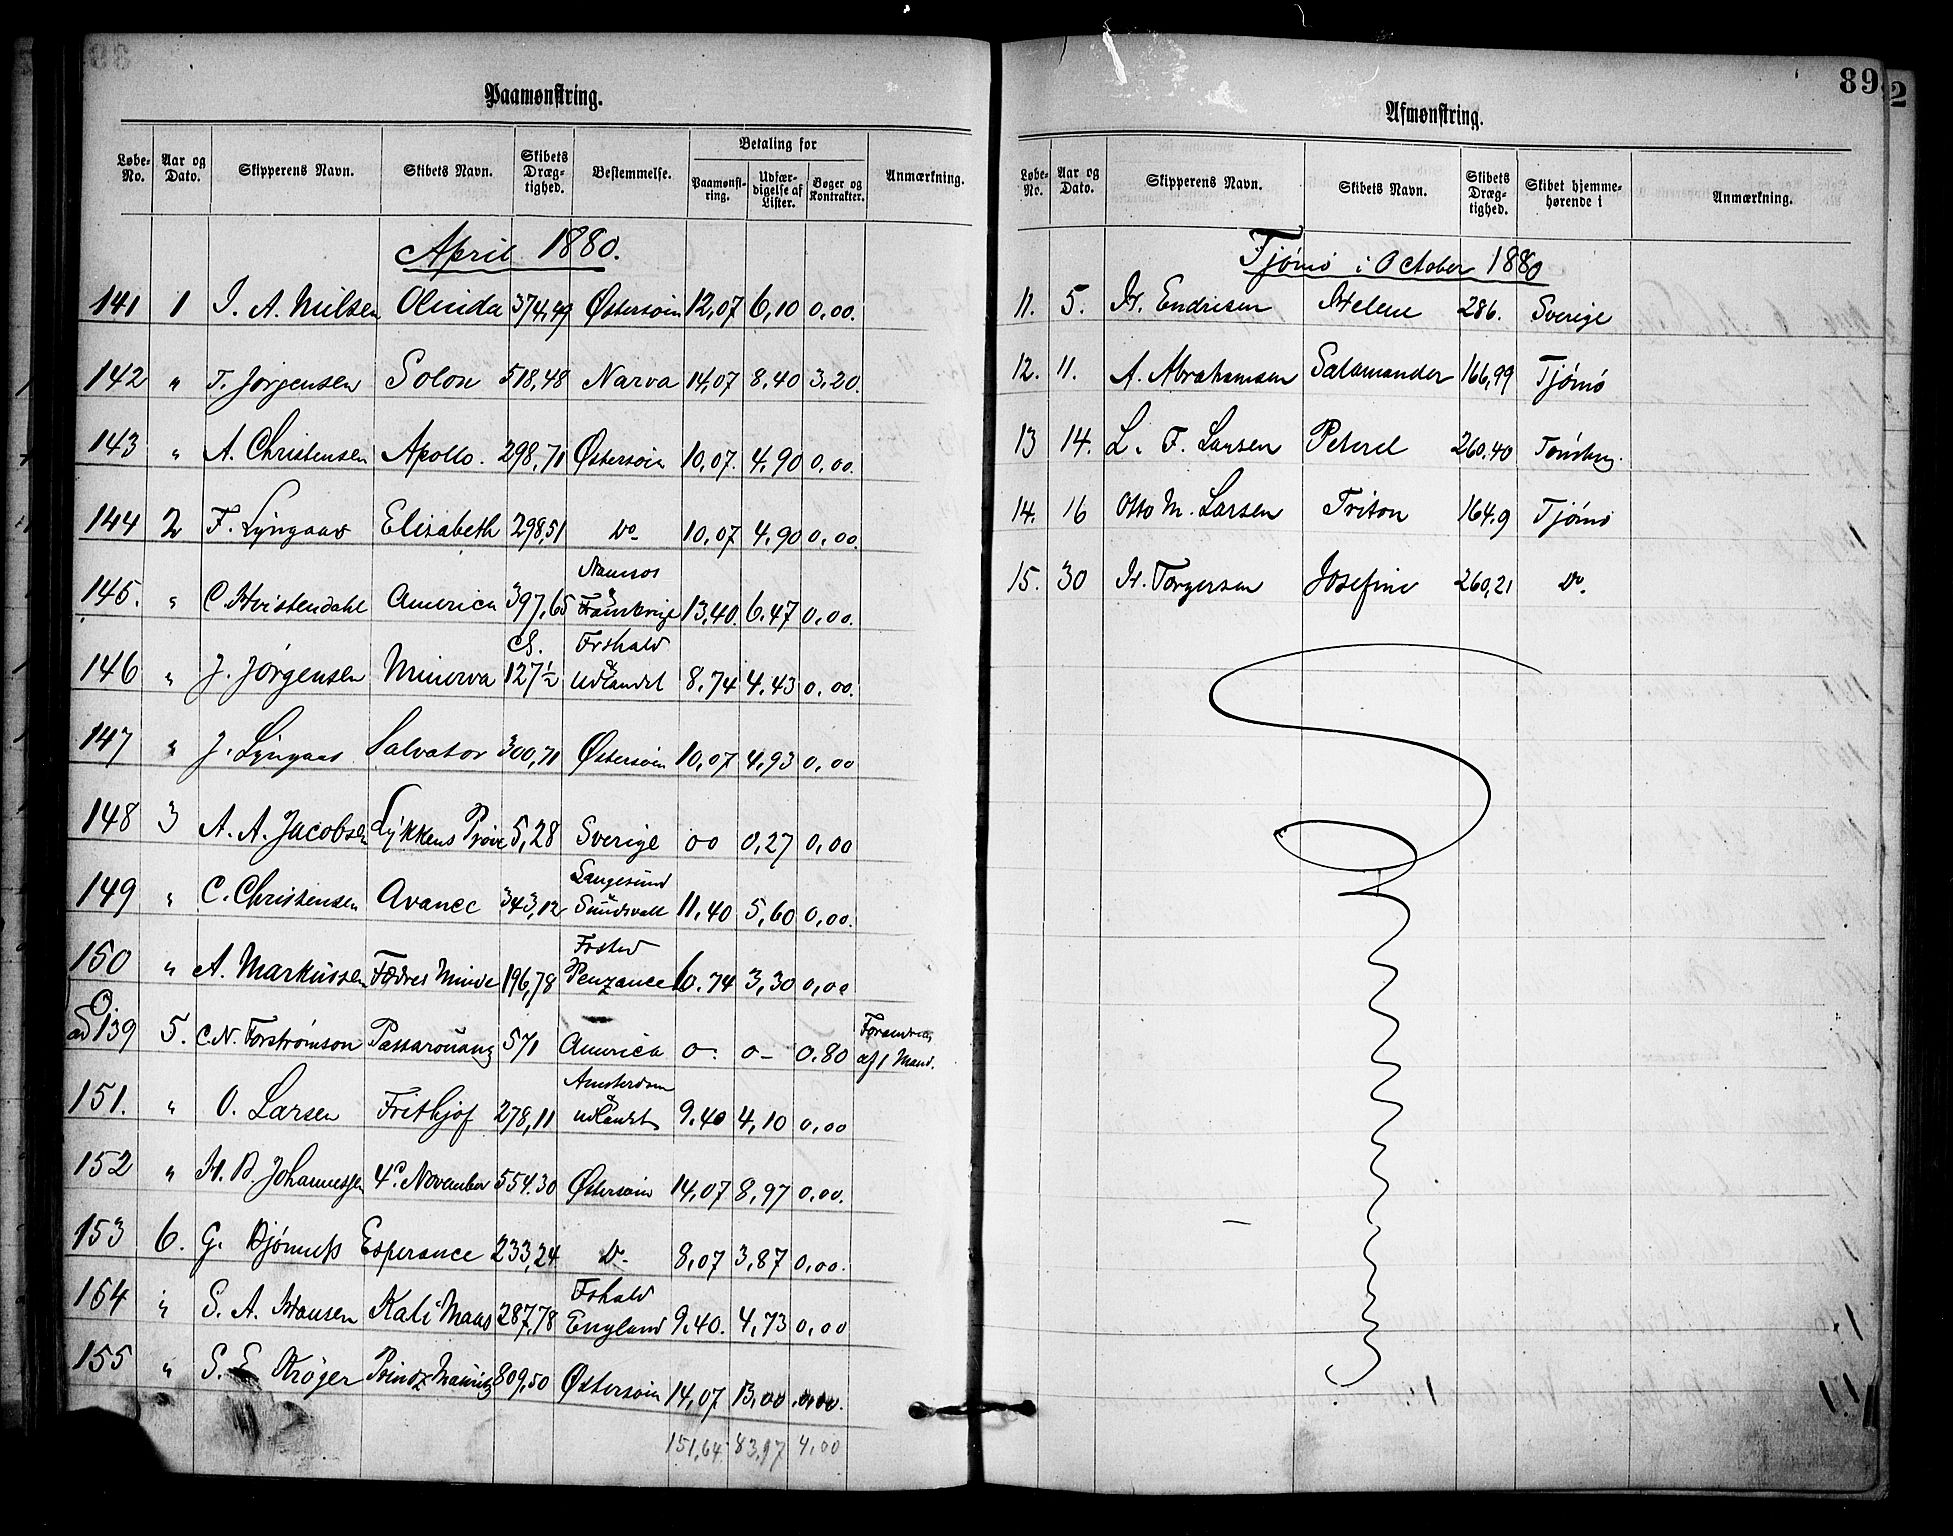 Paamønstring.
Løbe-No. Aar og Dato. Skipperens Navn. Skibets Navn. Skibets Dræg-tighed. Bestemmelse. Betaling for Paamønst-ring. Udfær-digelse af Lister. Bøger og Kontrakter. Anmærkning.
April 1880.
141 1 J. A. Nilsen Olinda 374,49 Østersøin 12,07 6,10 0,00.
142 " T. Jørgensen Solon 518,48 Narva 14,07 8,40 3,20.
143 " A. Christensen Apollo. 298,71 Østersøin 10,07. 4,90 0,00.
144 2 F. Lyngaas Elisabeth 298,51 Do 10,07 4,90 0,00.
Namsos
145. " C. Hvistendahl America 397,65 & Frankrige 13,40. 6,47 0,00.
Cl. Frshald
146 " J. Jørgensen Minerva 127½ & Udlandet 8,74 4,43 0,00.
147 " J. Lyngaas Salvator 300,71 Østersøin 10,07 4,93 0,00
148 3 A. A. Jacobsen Lykkens Prøve 5,28 Sverige 00 0,27 0,00
Langesund
149 " C. Christensen Avance 343,12 & Sundsvall 11,40 5,60 0,00.
Frsted
150 " A. Markussen Fædres Minde 196,78 Penzance 6.74 3,30 0,00
ad 139 5. C. N. Forstrømson Passarouang 571 America 0. 0- 0.80 Forandring af 1 Mand.
Amsterdam
151. " O. Larsen Frithjof 278,11 & Udlandet 9.40 4,10 0,00
152 " H. B. Johannessen 4de November 554.30 Østersøin 14,07 8,97 0,00.
153 6. G. Bjønness Esperance 233,24 Do. 8,07 3,87 0,00.
Frshald
154 " S. A. Hansen Kali Maas 287,78 England 9,40. 4,73 0,00
155 " S. E Krøger Prindz Mauritz 809,50 Østersøin 14,07 13,00 0,00.
151,64 83,97 4,00
89
2
Afmønstring.
Løbe-No. Aar og Dato. Skipperens Navn. Skibets Navn. Skibets Dræg-tighed. Skibet hjemme-hørende i Anmærkning.
Tjømø i October 1880
11. 5. H. Endresen Helene 286. Sverige
12. 11. A. Abrahamsen Salamander 166,99 Tjømø
13 14. L. F. Larsen Peterel 260.40 Tønsberg.
14. 16 Otto M. Larsen Triton 164.9 Tjømø
15. 30 H. Torgersen Josefine 260,21 Do.